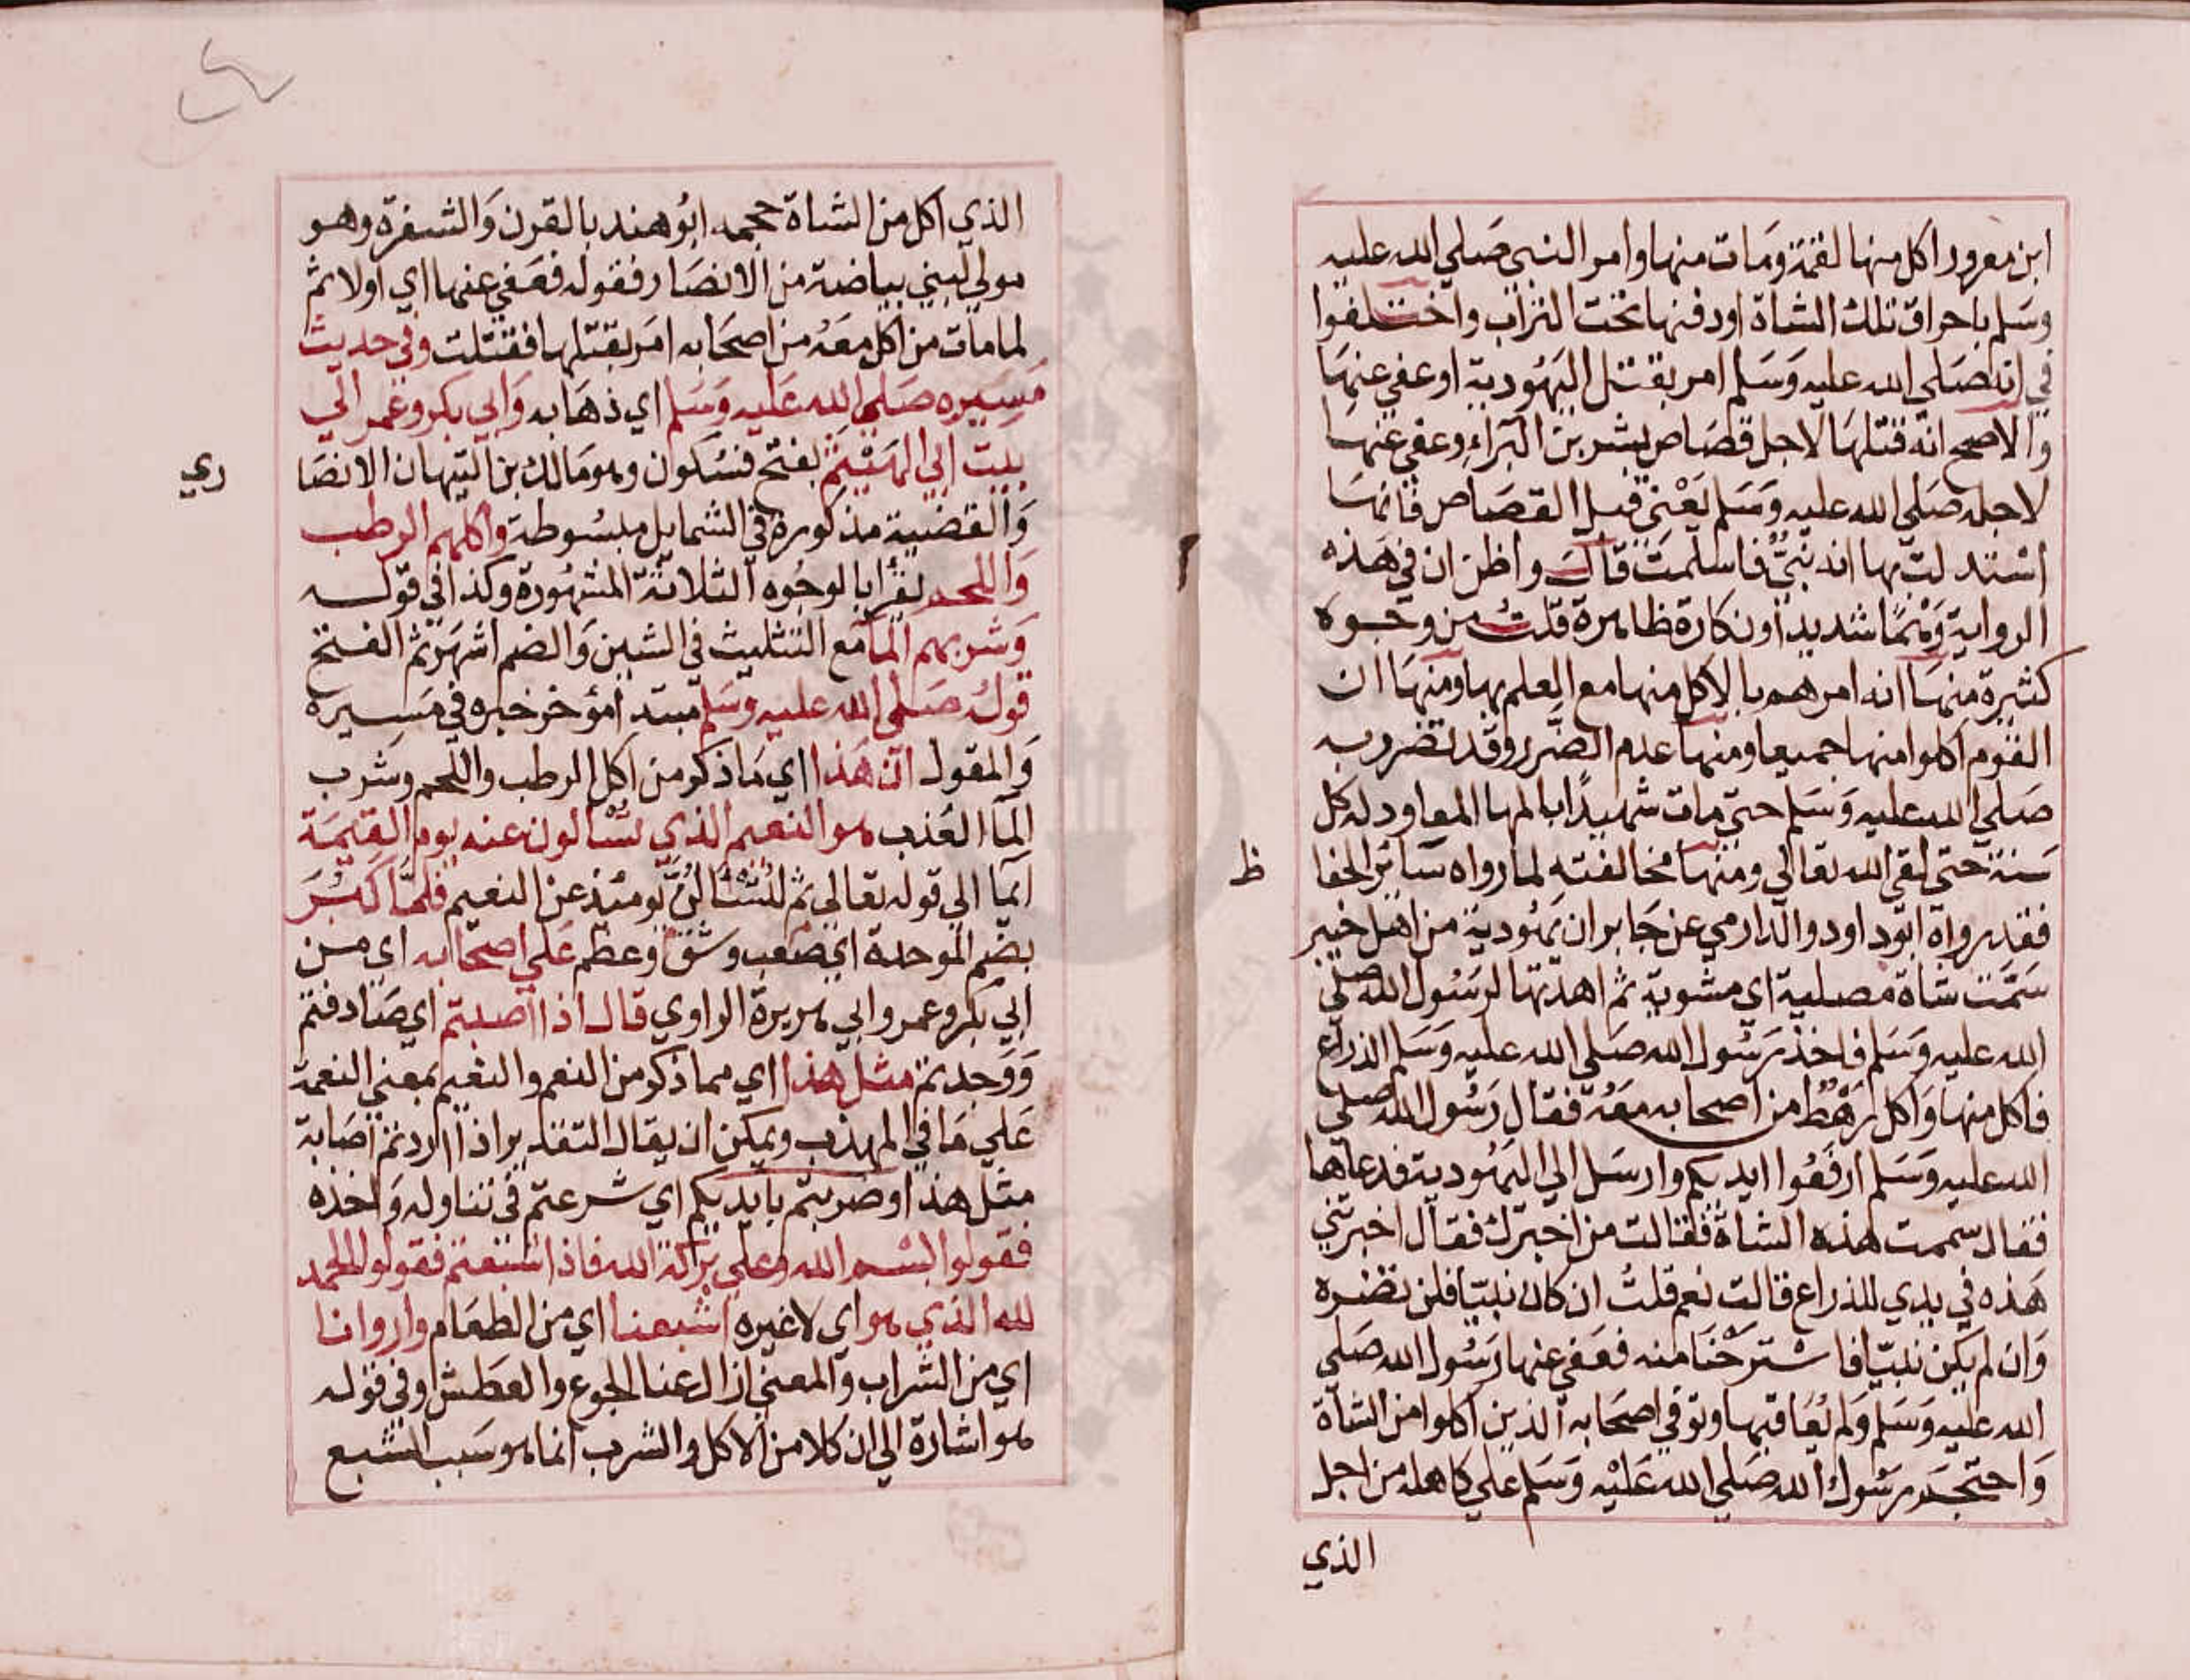 ابن معرور اكل منها لقمة ومات منها وامر النبي صلي الله عليه
وسلم باحراق تلك الشاة او دفنها تحت التراب واختلفوا
في انه صلي الله عليه وسلم امر بقتل اليهودية او عفي عنها
والاصح انه قتلها لاجل قصاص بشر بن البراء وعفي عنها
لاجله صلي الله عليه وسلم يعني قبل القصاص فانها
استدلت بها انه نبي فاسلمت قال واظن ان في هذه
الرواية وهما شديدا ونكارة ظاهرة قلت من وجوه
كثيرة منها انه امرهم بالاكل منها مع العلم بها ومنها ان
القوم اكلوا منها جميعا ومنها عدم الضرر وقد تضرر به
صلي الله عليه وسلم حتي مات شهيدا بالمها المعاود له كل
سنة حتي لقي الله تعالي ومنها مخالفته لما رواه سائر الحفا
ظ
فقد رواه ابو داود والدارمي عن جابر ان يهودية من اهل خيبر
سمت شاة مصلية اي مشوية ثم اهدتها لرسول الله صلي
الله عليه وسلم فاخذ رسول الله صلي الله عليه وسلم الذراع
فاكل منها واكل رهط من اصحابه معه فقال رسول الله صلي
الله عليه وسلم ارفعوا ايديكم وارسل الي اليهودية فدعاها
فقال سممت هذه الشاة فقالت من اخبرك فقال اخبرتني
هذه في يدي للذراع قالت نعم قلت ان كان نبيا فلن تضره
وان لم يكن نبيا فاسترحنا منه فعفي عنها رسول الله صلي
الله عليه وسلم ولم يعاقبها وتوفي اصحابه الذين اكلوا من الشاة
واحتجم رسول الله صلي الله عليه وسلم علي كاهله من اجل
الذي
الذي اكل من الشاة حجمه ابو هند بالقرن والشفرة وهو
مولي لبني بياضة من الانصار فقوله فعفي عنها اي اولا ثم
لما مات من اكل معه من اصحابه امر بقتلها فقتلت وفي حديث
مسيره صلي الله عليه وسلم اي ذهابه وابي بكر وعمر الي
بيت ابي الهيثم بفتح فسكون وهو مالك بن التيهان الانصا
ري
والقضية مذكورة في الشمايل مبسوطة واكلهم الرطب
واللحم يقرا بالوجوه الثلاثة المشهورة وكذا في قوله
وشربهم الما مع التثليث في الشين والضم اشهر ثم الفتح
قوله صلي الله عليه وسلم مبتدا مؤخر خبره في مسيره
والمقول ان هذا اي ما ذكر من اكل الرطب واللحم وشرب
الما العذب هو النعيم الذي تسألون عنه يوم القيمة
ايما الي قوله تعالي ثم لتسألن يومئذ عن النعيم فلما كبر
بضم الموحدة اي صعب وشق وعظم علي اصحابه اي من
ابي بكر وعمر وابي هريرة الراوي قال اذا اصبتم اي صادفتم
ووجدتم مثل هذا اي مما ذكر من النعم والنعيم بمعني النعمة
علي ما في المهذب ويمكن ان يقال التقدير اذا اردتم اصابة
مثل هذا وضربتم بايديكم اي شرعتم في تناوله واخذه
فقولوا بسم الله وعلي بركة الله فاذا شبعتم فقولوا الحمد
لله الذي هو اي لا غيره اشبعنا اي من الطعام واروانا
اي من الشراب والمعني ازال عنا الجوع والعطش وفي قوله
هو اشارة الي ان كلا من الاكل والشرب انما هو سبب الشبع